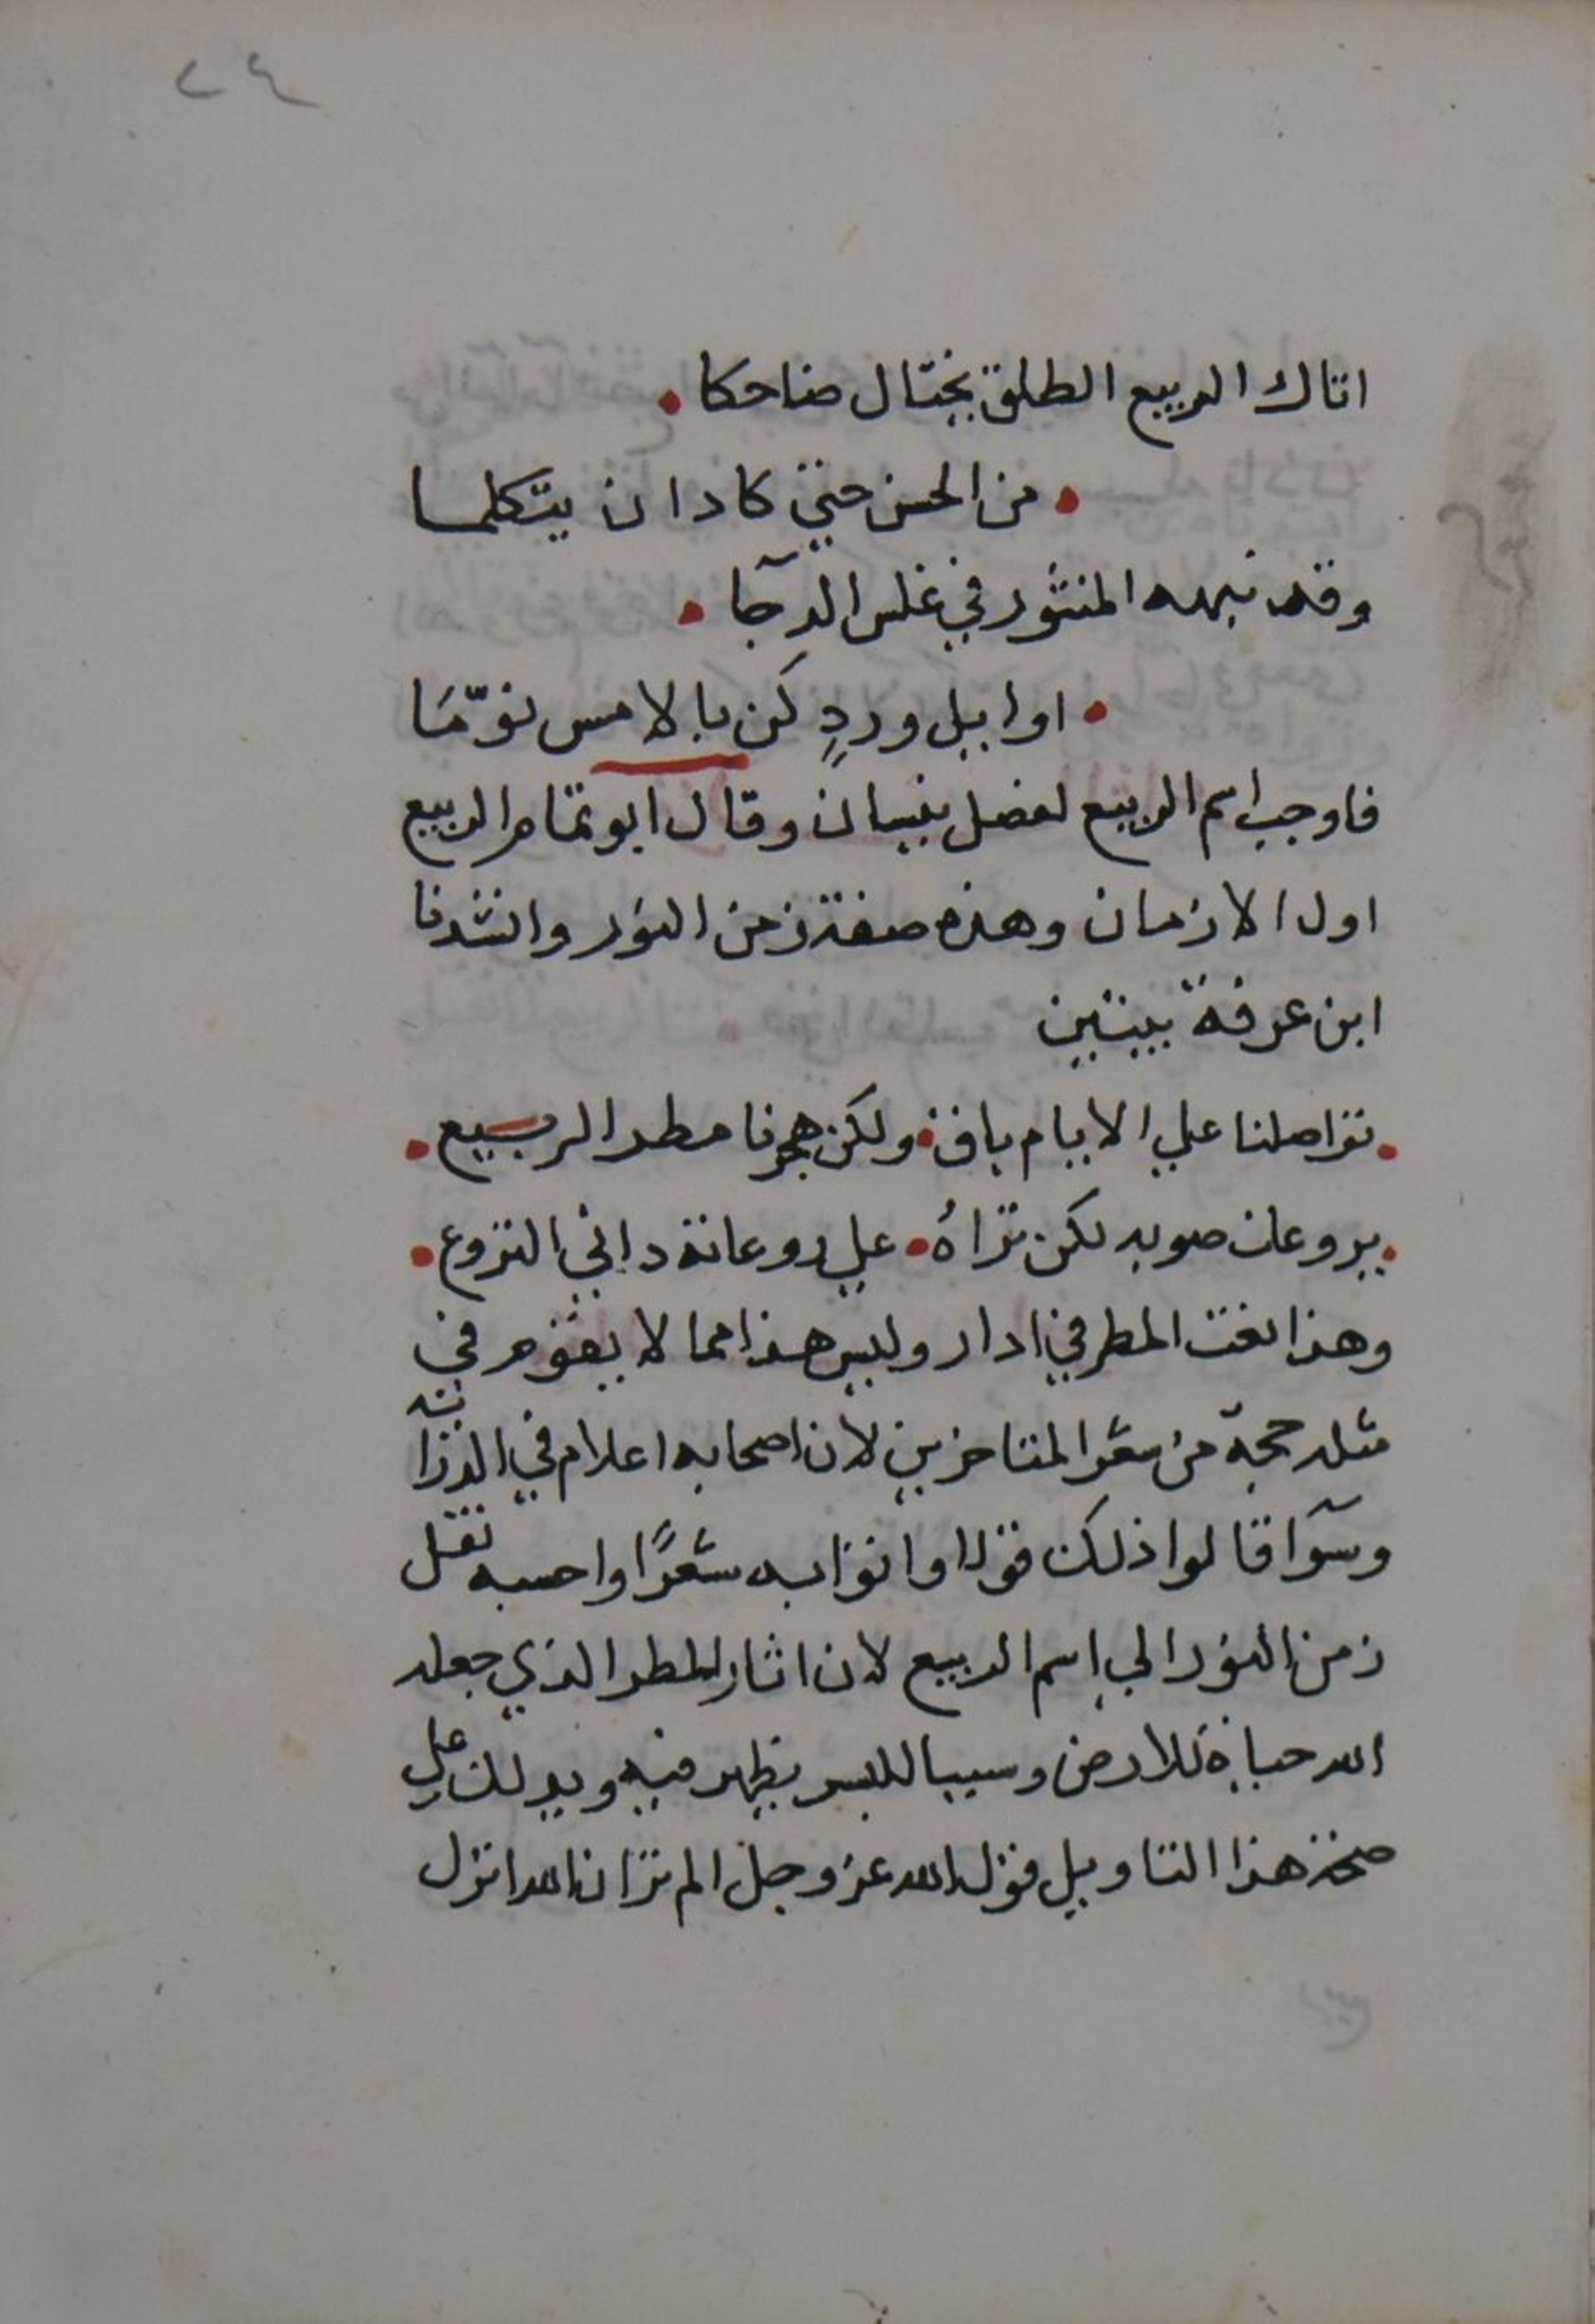 ٢٤
اتاك الربيع الطلق يختال ضاحكا •
• من الحسن حتي كاد ان يتكلما
وقد نبهه المنثور في غلس الدجا •
• اواييل وردٍ كن بالامس نوّمَا
فاوجب اسم الربيع لفصل نيسان وقال ابو تمام الربيع
اول الازمان وهذه صفة زمن النور وانشدنا
ابن عرفة ببيتين
• تواصلنا علي الايام باق • ولكن هجرنا مطر الربيع •
• يروعك صوبه لكن تراهُ • علي روعاته داني النزوع •
وهذا نعت المطر في ادار وليس هذا مما لا يقوم في
مثله حجة من شعر المتاخرين لان اصحابه اعلام في الدراية
وسوآ قالوا ذلك قولا او اتوا به شعرًا واحسبه نقل
زمن النور الي اسم الربيع لان اثار المطر الذي جعله
الله حياة للارض وسببا لليسر يظهر فيه ويدلك علي
صحة هذا التاويل قول الله عز وجل الم تر ان الله انزل